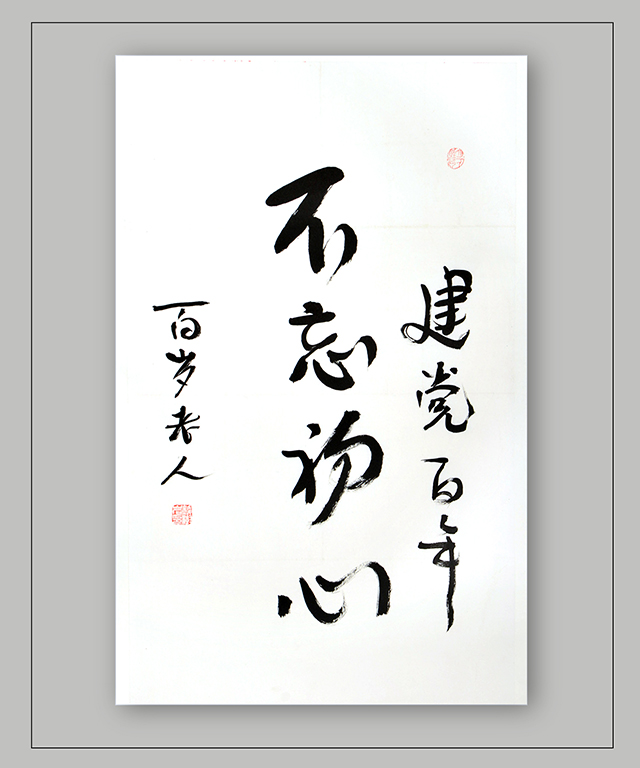 建党百年
不忘初心
百岁老人